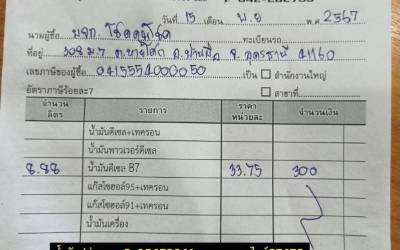 วันที่ 15 เดือน พ.ย พ.ศ 2567
นามผู้ซื้อ บจก. โชคดูผู้โชค ทะเบียนรถ
ที่อยู่ 308 ม.7 ต. จ. อุดรธานี 41160
เลขภาษีของผู้ซื้อ 0415551000050 เป็น สำนักงานใหญ่
อัตราภาษีร้อยละ7 สาขาที่
จำนวนลิตร รายการ ราคาหน่วยละ จำนวนเงิน
น้ำมันดีเซล+เทครอน
น้ำมันพาวเวอร์ดีเซล
8.88 น้ำมันดีเซล B7 33.75 300
แก๊สโซฮอล์95+เทครอน
แก๊สโซฮอล์91+เทครอน
น้ำมันเครื่อง